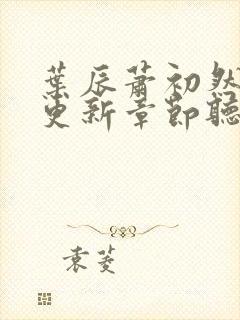 葉辰蕭初然
更新章節聽
袁菱